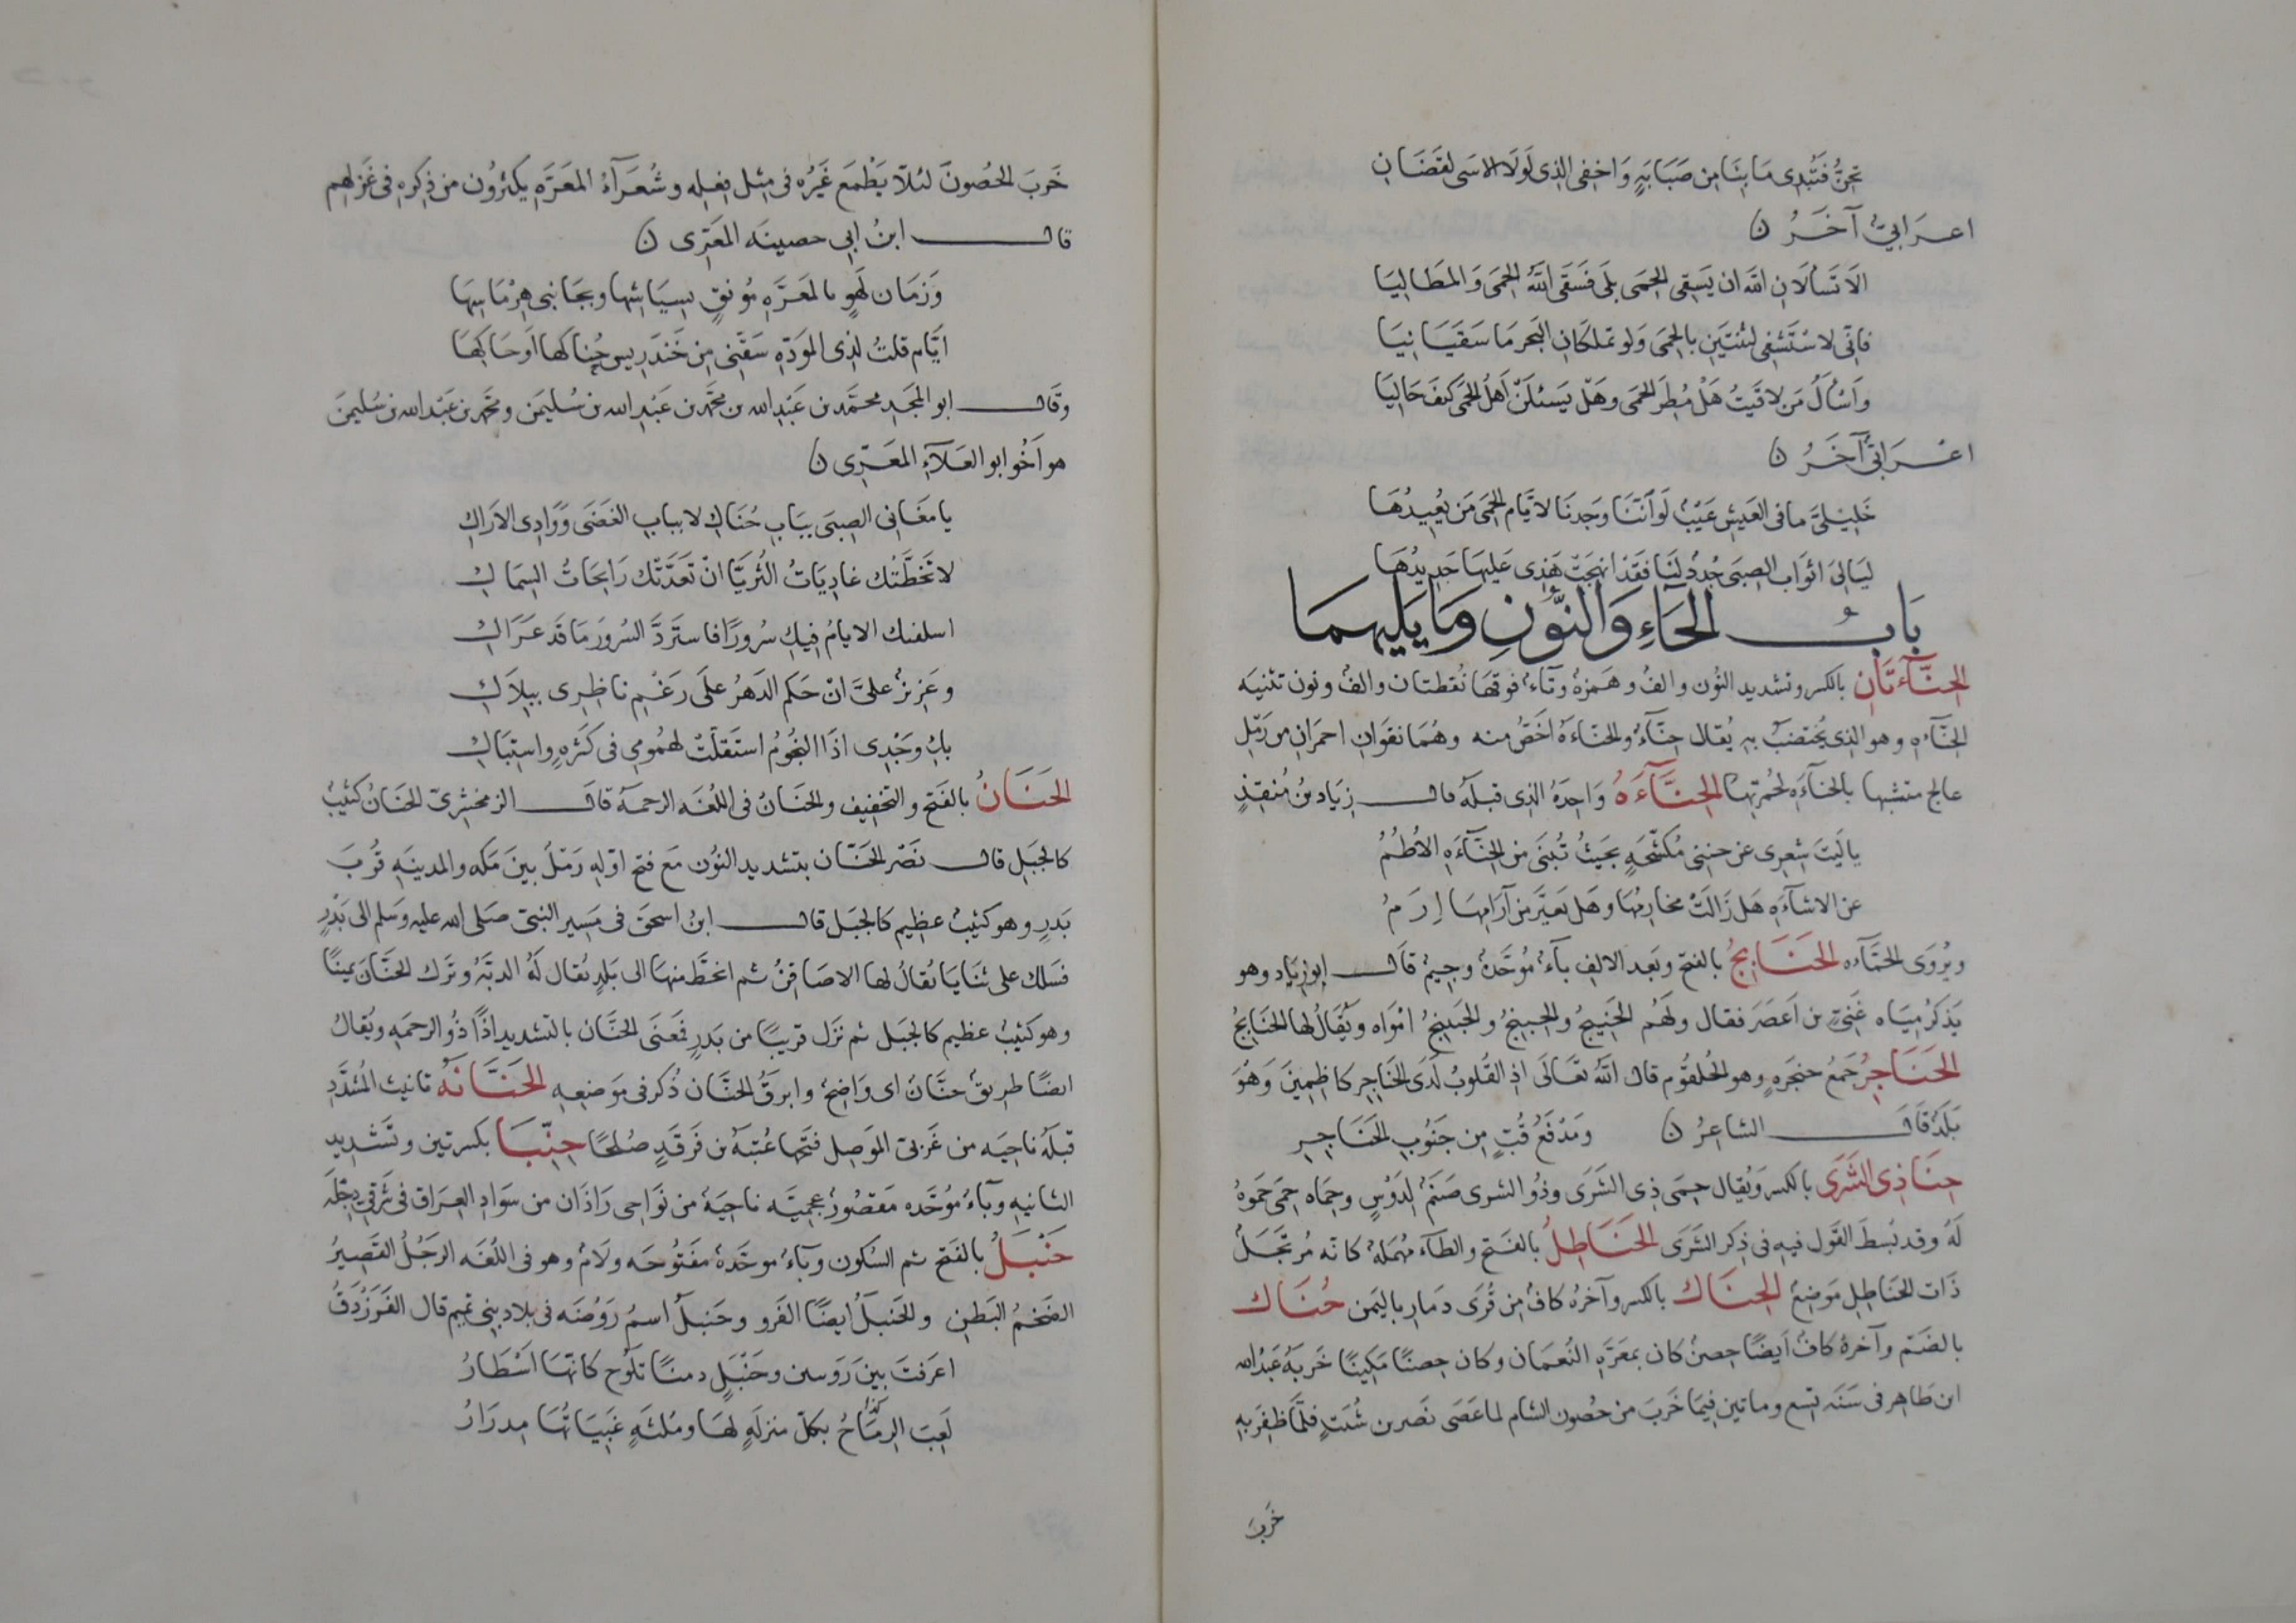 تحنّ فتبدى ما بنا من صبابةٍ واخفى الذى لولا الاسى لقضانِ
اعرابيّ آخرُ ن
الا تسألان الله ان يَسقى الحمى بلى فسقى الله الحمى والمطاليا
فانّى لاستشفى لثنتين بالحمى ولو تملكان البحر ما سقيانيا
واسأل من لاقيتُ هل مُطر الحمى وهل يسئلنّ اهل الحمى كيف حاليا
اعرابيّ آخرُ ن
خليليّ ما فى العيش عيبٌ لو اننا وجدنا لايّام الحمى من يُعيدُها
ليالى اثواب الصبى جُددٌ لنا فقد انهجت هذى عليها جديدُها
بابُ الحاءِ والنّونِ وما يليهما
الحِنّآءتانِ بالكسر وتشديد النُون والفٌ وهمزةٌ وتاءٌ فوقها نُقطتان والفٌ ونون تثنيه
الحِنّآءه وهو الذى يُختضبُ به يُقال حنّآءٌ والحنّاءةُ اخصُّ منه وهُما نقوانِ احمرانِ من رَمْل
عالج مشبها بالحنّآءه لحُمرتهما الحِنّآءَهُ وَاحِدةُ الذى قبلهُ قال زياد بنُ مُنقذٍ
يا ليت شعرى عن جنبى مُكشّحةٍ بحيثُ تُبنى من الحِنّآءَهِ الاُطُمُ
عن الاشآءَهِ هل زالت مخارِمُها وهل تغيّر من آرامها اِرَمُ
ويُروى الحمّآءه الحَنَابِجُ بالفتح وبعد الالف بآءٌ مُوحّدةٌ وجيمٌ قال ابو زياد وهو
يذكرُ مياه غَنىّ بن اعصَر فقال ولهُم الحَنبِجُ والحُبينجُ والحَنيبجُ امواه ويُقالُ لها الحَنابِجُ
الحَنَاجِرُ جمعُ حنجرهٍ وهو الحُلقُوم قال الله تعالى اذِ القُلوبُ لدى الحناجِر كاظِمِينَ وهُوَ
بَلدٌ قال الشاعِرُ ن ومَدْفَعُ قُفٍّ من جَنُوبِ الحَناجِرِ
حِنَا ذِى الشَرَى بالكسر ويُقال حِمى ذِى الشَرَى وذُو الشرى صنمٌ لدَوْسٍ وحِماه حِمى حَموهُ
لهُ وقد بُسطَ القَول فيهِ فى ذِكر الشَرَى الحَنَاطِلُ بالفتح والطآء مُهملهٌ كانه مُرتجلٌ
ذات الحَناطِلِ مَوضِعٌ الحِنَاك بالكسر وآخرُه كافٌ من قُرَى ذمارِ باليمن حُنَاك
بالضم وآخرهُ كافٌ ايضًا حِصنٌ كان بمعرّهِ النُعمان وكان حِصنًا مَكينًا خَربَهُ عَبدُ الله
ابن طاهر فى سَنَه تِسع ومائتين فيما خَربَ من حُصون الشام لما عَصَى نَصر بن شَبَثٍ فلمّا ظفِرَ بهِ
خَربَ
خَربَ الحُصونَ لئلاّ يَطْمَع غَيرُه فى مِثل فِعله وشُعرآءُ المعَرّهِ يكثرُون من ذِكرهِ فى غَزلهِم
قال ابنُ ابى حصينه المعَرّى ن
وَزمان لَهوٍ بالمَعرّهِ مُونقٍ بسِيَاثها وبجانبى هِرماسِها
ايّام قلتُ لذِى المَودّهِ سَقّنى من خَندَريس حُناكها او حَاسِها
وقال ابو المجد محمّد بن عَبدِ الله بن محمّد بن عَبدِ الله بن سُليمن ومحمّد بن عَبد الله بن سُليمنَ
هو اخُو ابو العلآءِ المَعَرّى ن
يا مغَانى الصِبَى بِبَابِ حُناكِ لا ببابِ الغضى ووادِى الاراكِ
لا تخَطّتك غادِيَاتُ الثُريّا ان تعَدّتك رَايحَاتُ السِماكِ
اسلفتك الايامُ فيكِ سُرورًا فاستردّ السُرورَ ما قد عَرَاكِ
وعَزيزٌ علىّ ان حَكم الدَهرُ على رَغمِ ناظِرى ببِلاكِ
بكِ وجْدِى اذا النُجُومُ استقلّت لهمُومِى فى كثرَهٍ واشتباكِ
الحَنَانُ بالفتح والتخفيف والحَنانُ فى اللُغه الرحمهُ قال الزمخشرىّ الحَنانُ كثيبٌ
كالجبلِ قال نَصْر الحَنّان بتشديد النُون مَع فتح اوّلِهِ رَمْلٌ بينَ مَكه والمدينهِ قُربَ
بَدرٍ وهو كثيبٌ عظيم كالجبَل قال ابنُ اسحق فى مَسِير النبىّ صَلى الله عليه وسَلم الى بَدْرٍ
فسَلك على ثنايا يُقالُ لها الاصَافِرُ ثم انحطّ منها الى بَلدٍ يُقال لهُ الدبّهُ وترك الحَنّان يمينًا
وهو كثيبٌ عظيم كالجبَل ثم نزَل قريبًا من بَدرٍ فمعنى الحَنّان بالتشديد اذًا ذُو الرحمهِ ويُقالُ
ايضًا طريقٌ حنّانٌ اى واضِحٌ وابرقُ الحَنّان ذُكر فى موضِعِهِ الحَنّانَهُ تانيث المُشدّدِ
قبلهُ ناحِيَه من غَربىّ المَوصِل فتحَها عُتبَهُ بن فَرقدٍ صُلحًا حِنِّبَا بكسرتين وتشديد
الثانيهِ وبآءٌ مُوحّده مقصُورٌ عجميّه ناحِيَهٌ من نواحى رَاذان من سوادِ العِراق فى شرقىّ دِجْلَه
حَنْبَلٌ بالفتح ثم السُكون وبآءٌ موحّدهٌ مفتُوحه ولامٌ وهو فى اللُغه الرجُلُ القَصِيرُ
الضَخمُ البَطنِ والحَنبلُ ايضًا الفَرو وحَنبلٌ اسمُ رَوضَه فى بلاد بنى تميم قال الفَرزدقُ
اعَرفتَ بينَ رَويتين وحَنْبَلٍ دِمنًا تلُوح كانّها اَسْطَارُ
كذا
لَعِبَ الرِماحُ بكلّ منزلهٍ لها ومُلثّهٍ غَبَيَاتُها مِدرَارُ